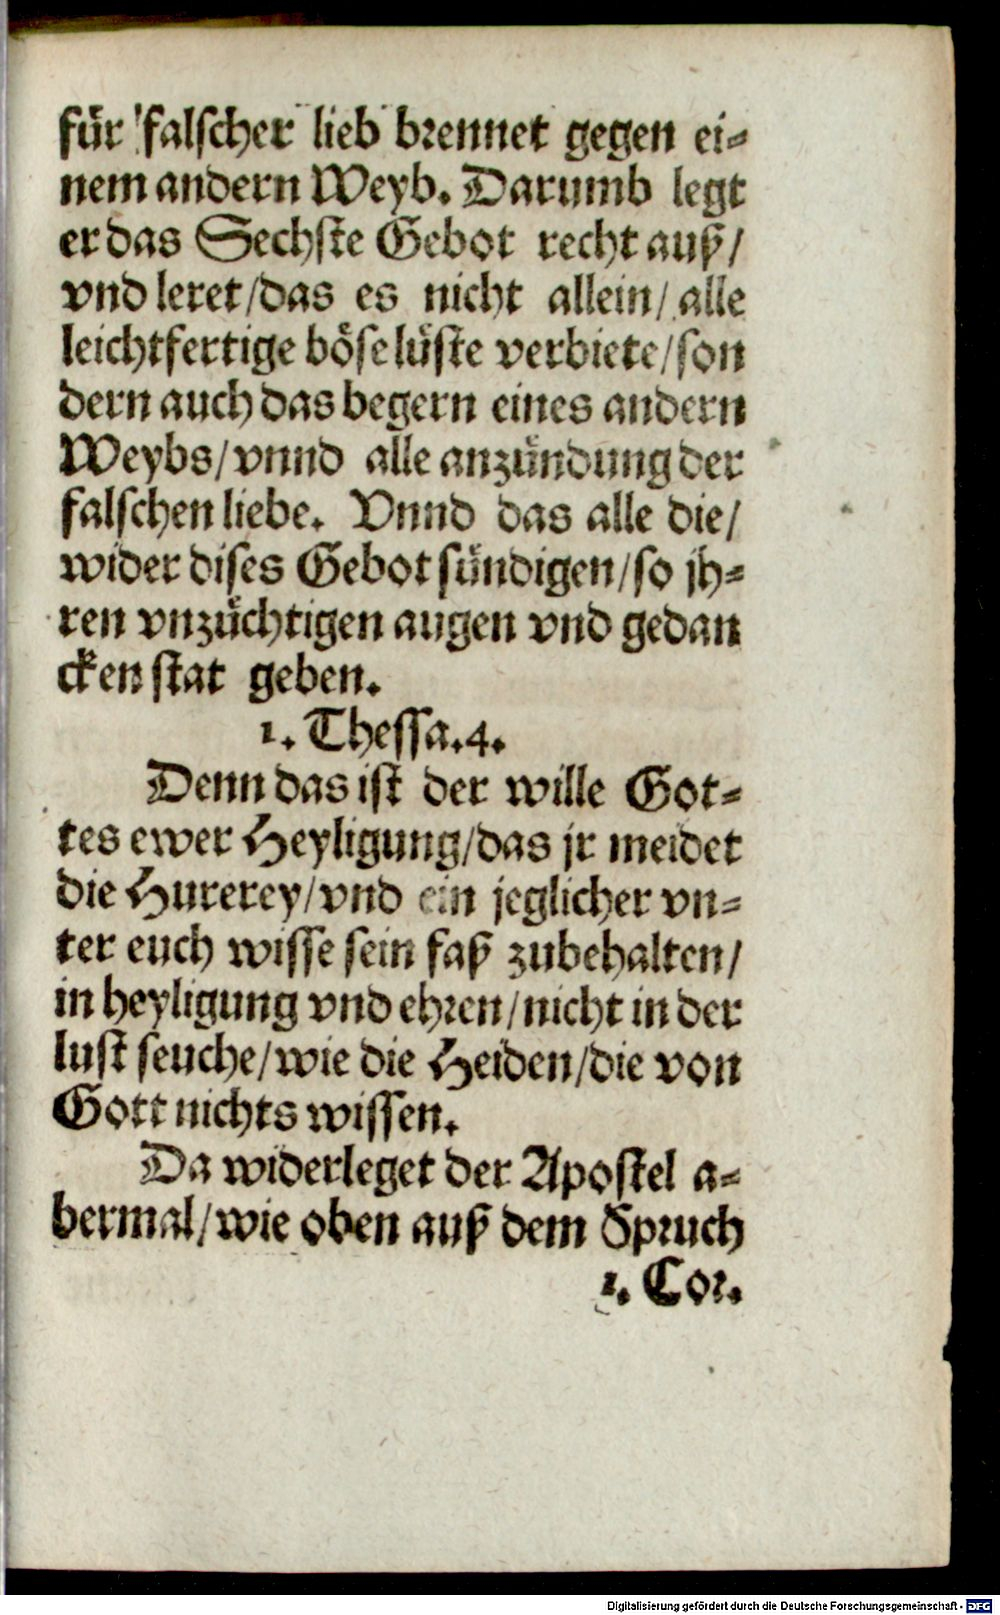 für falscher lieb brennet gegen ei⸗
nem andern Weyb. Darumb legt
er das Sechste Gebot recht auß/
vnd leret/das es nicht allein/ alle
leichtfertige böse lüste verbiete/son
dern auch das begern eines andern
Weybs/vnnd alle anzündung der
falschen liebe. Vnnd das alle die/
wider dises Gebot sündigen/so jh⸗
ren vnzüchtigen augen vnd gedan
cken stat geben.
1. Thessa.4.
Denn das ist der wille Got⸗
tes ewer Heyligung/das jr meidet
die Hurerey/vnd ein jeglicher vn⸗
ter euch wisse sein faß zubehalten/
in heyligung vnd ehren/nicht in der
lust seuche/wie die Heiden/die von
Gott nichts wissen.
Da widerleget der Apostel a⸗
bermal/wie oben auß dem Spruch
1. Cor.
Digitalisierung gefördert durch die Deutsche Forschungsgemeinschaft - DFG